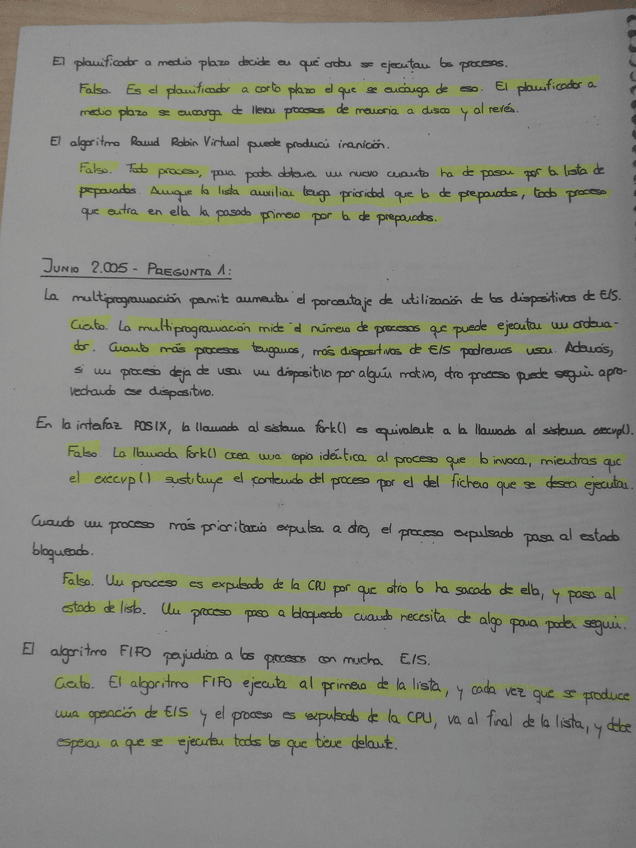 El planificador a medio plazo decide en qué orden se ejecutan los procesos.
Falso. Es el planificador a corto plazo el que se encarga de eso. El planificador a
medio plazo se encarga de llevar procesos de memoria a disco y al revés.
El algoritmo Round Robin Virtual puede producir inanición.
Falso. Todo proceso, para poder obtener un nuevo cuanto ha de pasar por la lista de
preparados. Aunque la lista auxiliar tenga prioridad que la de preparados, todo proceso
que entra en ella ha pasado primero por la de preparados.
JUNIO 2.005 - PREGUNTA 1:
La multiprogramación permite aumentar el porcentaje de utilización de los dispositivos de E/S.
Cierto. La multiprogramación mide el número de procesos que puede ejecutar un ordena-
dor. Cuanto más procesos tengamos, más dispositivos de E/S podremos usar. Además,
si un proceso deja de usar un dispositivo por algún motivo, otro proceso puede seguir apro-
vechando ese dispositivo.
En la interfaz POSIX, la llamada al sistema fork() es equivalente a la llamada al sistema execvp().
Falso. La llamada fork() crea una copia idéntica al proceso que lo invoca, mientras que
el execvp() sustituye el contenido del proceso por el del fichero que se desea ejecutar.
Cuando un proceso más prioritario expulsa a otro, el proceso expulsado pasa al estado
bloqueado.
Falso. Un proceso es expulsado de la CPU por que otro lo ha sacado de ella, y pasa al
estado de listo. Un proceso pasa a bloqueado cuando necesita de algo para poder seguir.
El algoritmo FIFO perjudica a los procesos con mucha E/S.
Cierto. El algoritmo FIFO ejecuta al primero de la lista, y cada vez que se produce
una operación de E/S y el proceso es expulsado de la CPU, va al final de la lista, y debe
esperar a que se ejecuten todos los que tiene delante.